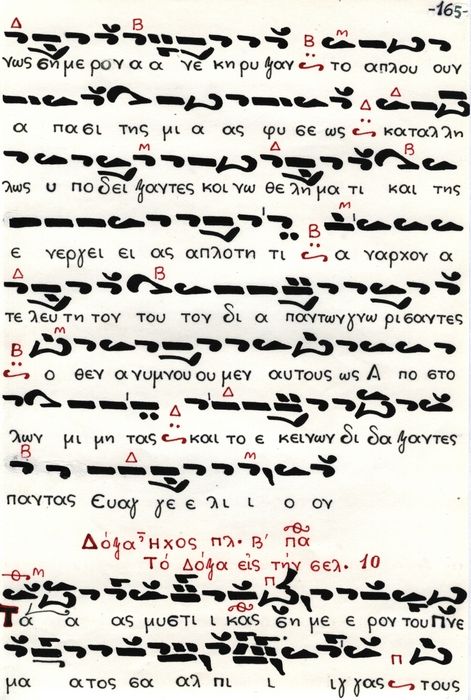 -165-
νως σημερον α α νε κηρυξαν το απλουουν
α πασι της μι α ας φυσεως καταλλη
λως υ ποδειξαντες κοινω θελημα τι και της
ε νεργει ει ας απλοτη τι α ναρχον α
τελευτητον του τον δι α παντωνγνωρισαντες
ο θεν ανυμνουουμεν αυτους ως Α ποστο
λων μι μη τας και το ε κεινων διδαξαντες
παντας Ευαγ γε ε λι ι ο ον
Δόξα Ἦχος πλ. Β' πα
Τό Δόξα εἰς τήν σελ. 10
Τα α ας μυστι ι κας σημε ε ρον του Πνε
μα ατος σα αλ πι ι ιγγας τους